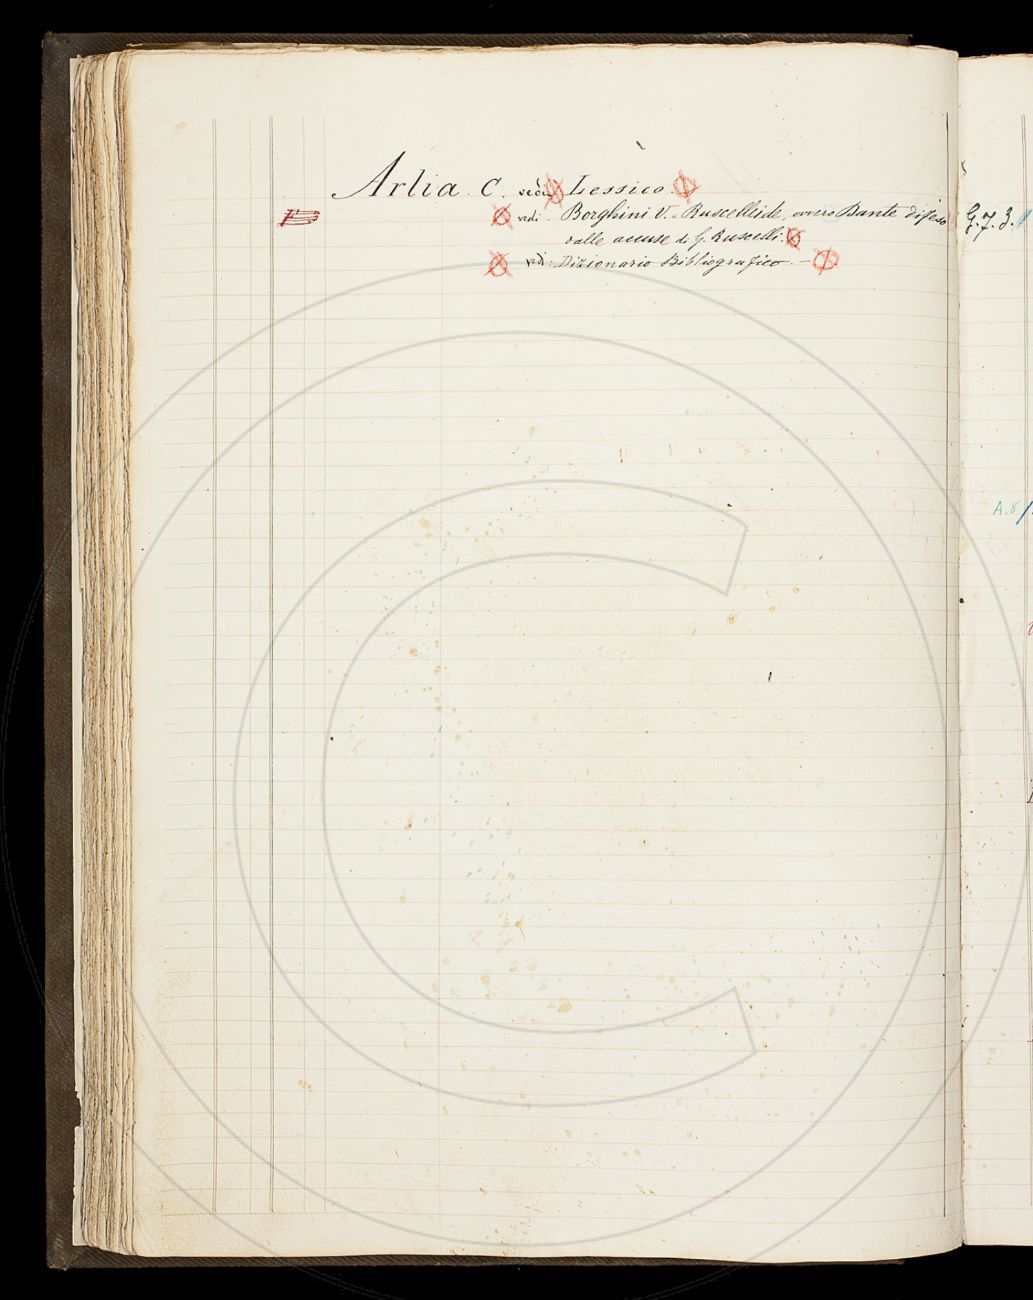 Arlia C. vedi Lessico.
vedi - Borghini V. - Ruscelleide, ovvero Dante difeso G. 7. 3.
dalle accuse di G. Ruscelli.
vedi: Dizionario Bibliografico. -
A. 8